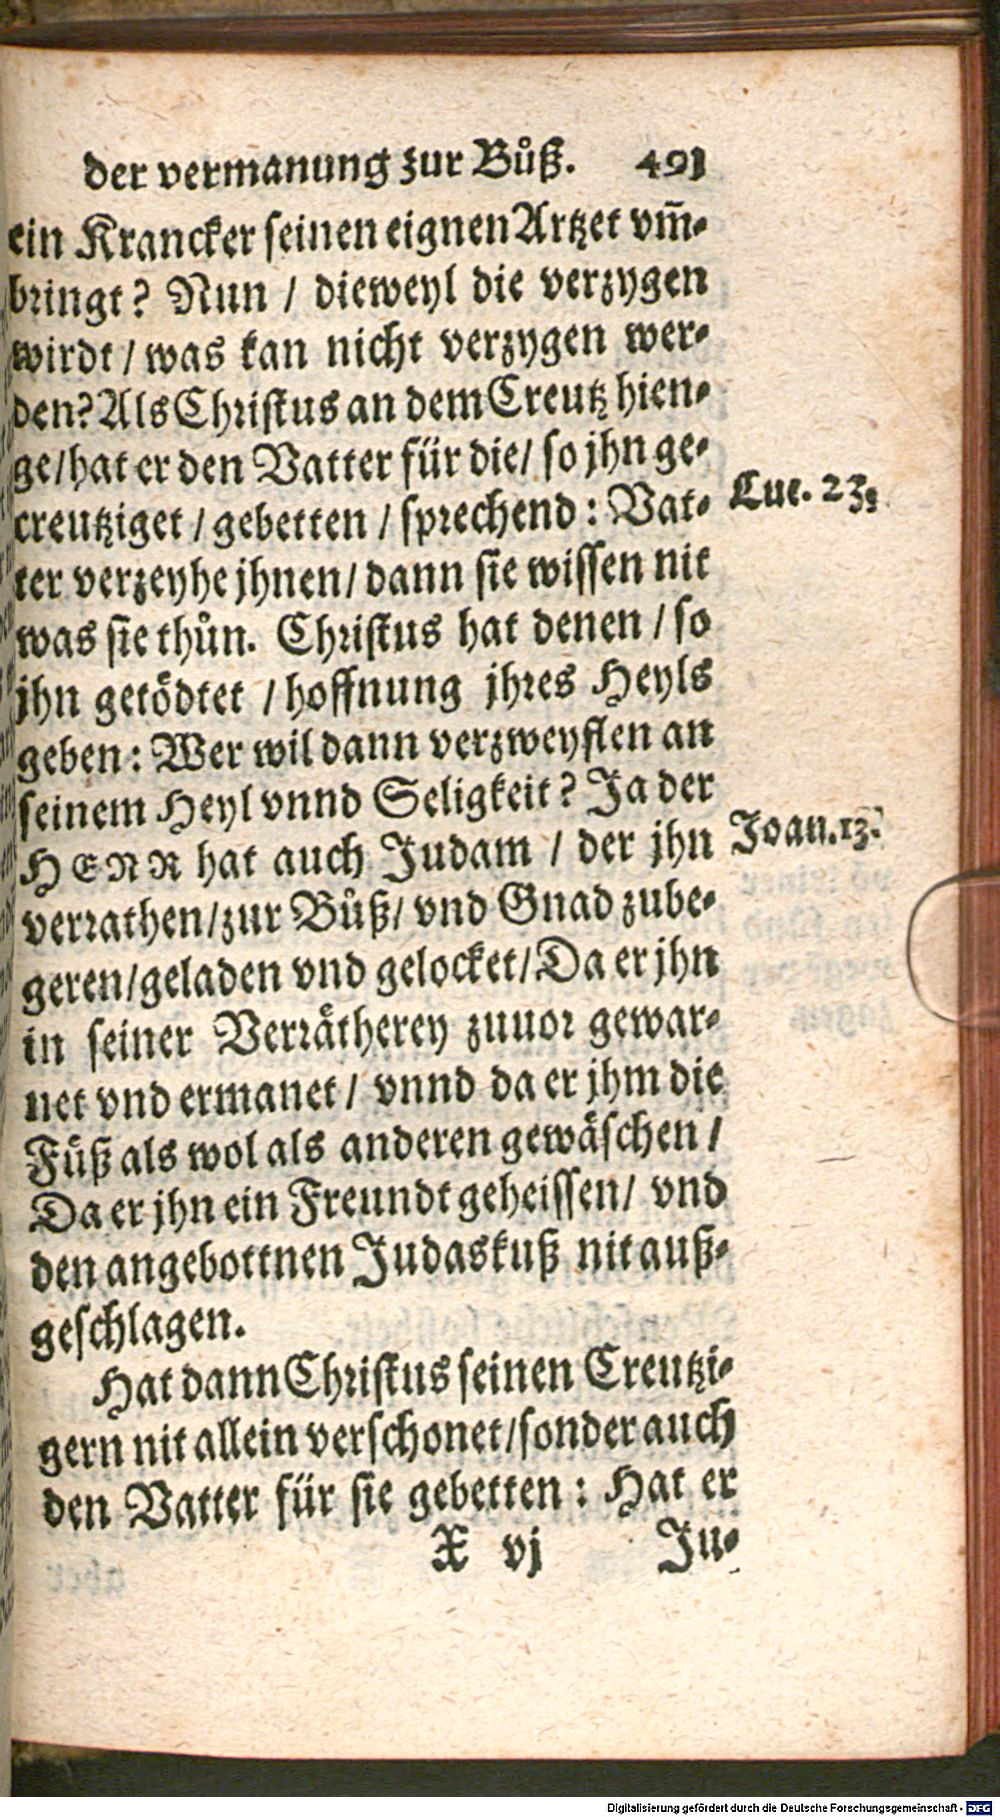 der vermanung zur Bůß. 491
ein Krancker seinen eignen Artzet vm̃-
bringt? Nun / dieweyl die verzygen
wirdt / was kan nicht verzygen wer-
den? Als Christus an dem Creutz hien-
ge / hat er den Vatter für die / so jhn ge-
creutziget / gebetten / sprechend : Vat-
Luc. 23.
ter verzeyhe jhnen / dann sie wissen nit
was sie thůn. Christus hat denen / so
jhn getödtet / hoffnung jhres Heyls
geben : Wer wil dann verzweyflen an
seinem Heyl vnnd Seligkeit? Ja der
HERR hat auch Judam / der jhn
Joan. 13.
verrathen / zur Bůß / vnd Gnad zube-
geren / geladen vnd gelocket / Da er jhn
in seiner Verrätherey zuuor gewar-
net vnd ermanet / vnnd da er jhm die
Füß als wol als anderen gewäschen /
Da er jhn ein Freundt geheissen / vnd
den angebottnen Judaskuß nit auß-
geschlagen.
Hat dann Christus seinen Creutzi-
gern nit allein verschonet / sonder auch
den Vatter für sie gebetten : Hat er
X vj Ju-
Digitalisierung gefördert durch die Deutsche Forschungsgemeinschaft - DFG